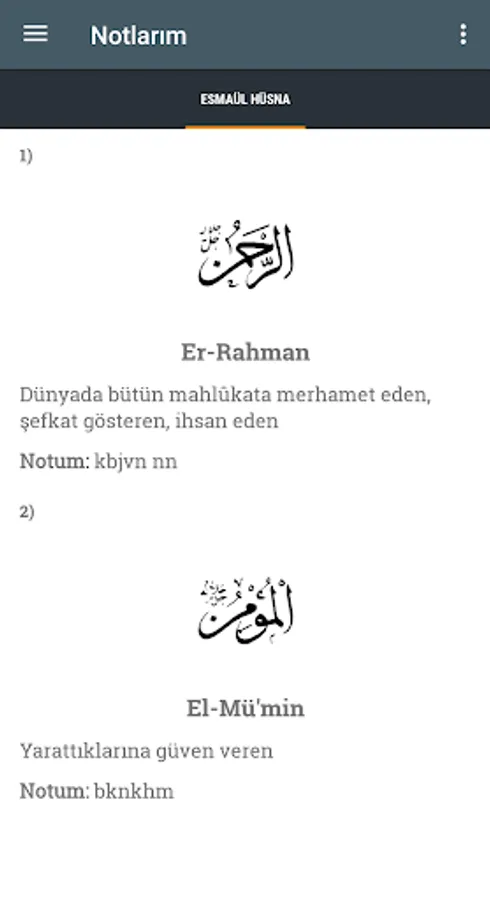 Notlarım
ESMAÜL HÜSNA
1)
الرَّحْمٰنُ
Er-Rahman
Dünyada bütün mahlûkata merhamet eden,
şefkat gösteren, ihsan eden
Notum: kbjvn nn
2)
الْمُؤْمِنُ
El-Mü'min
Yarattıklarına güven veren
Notum: bknkhm